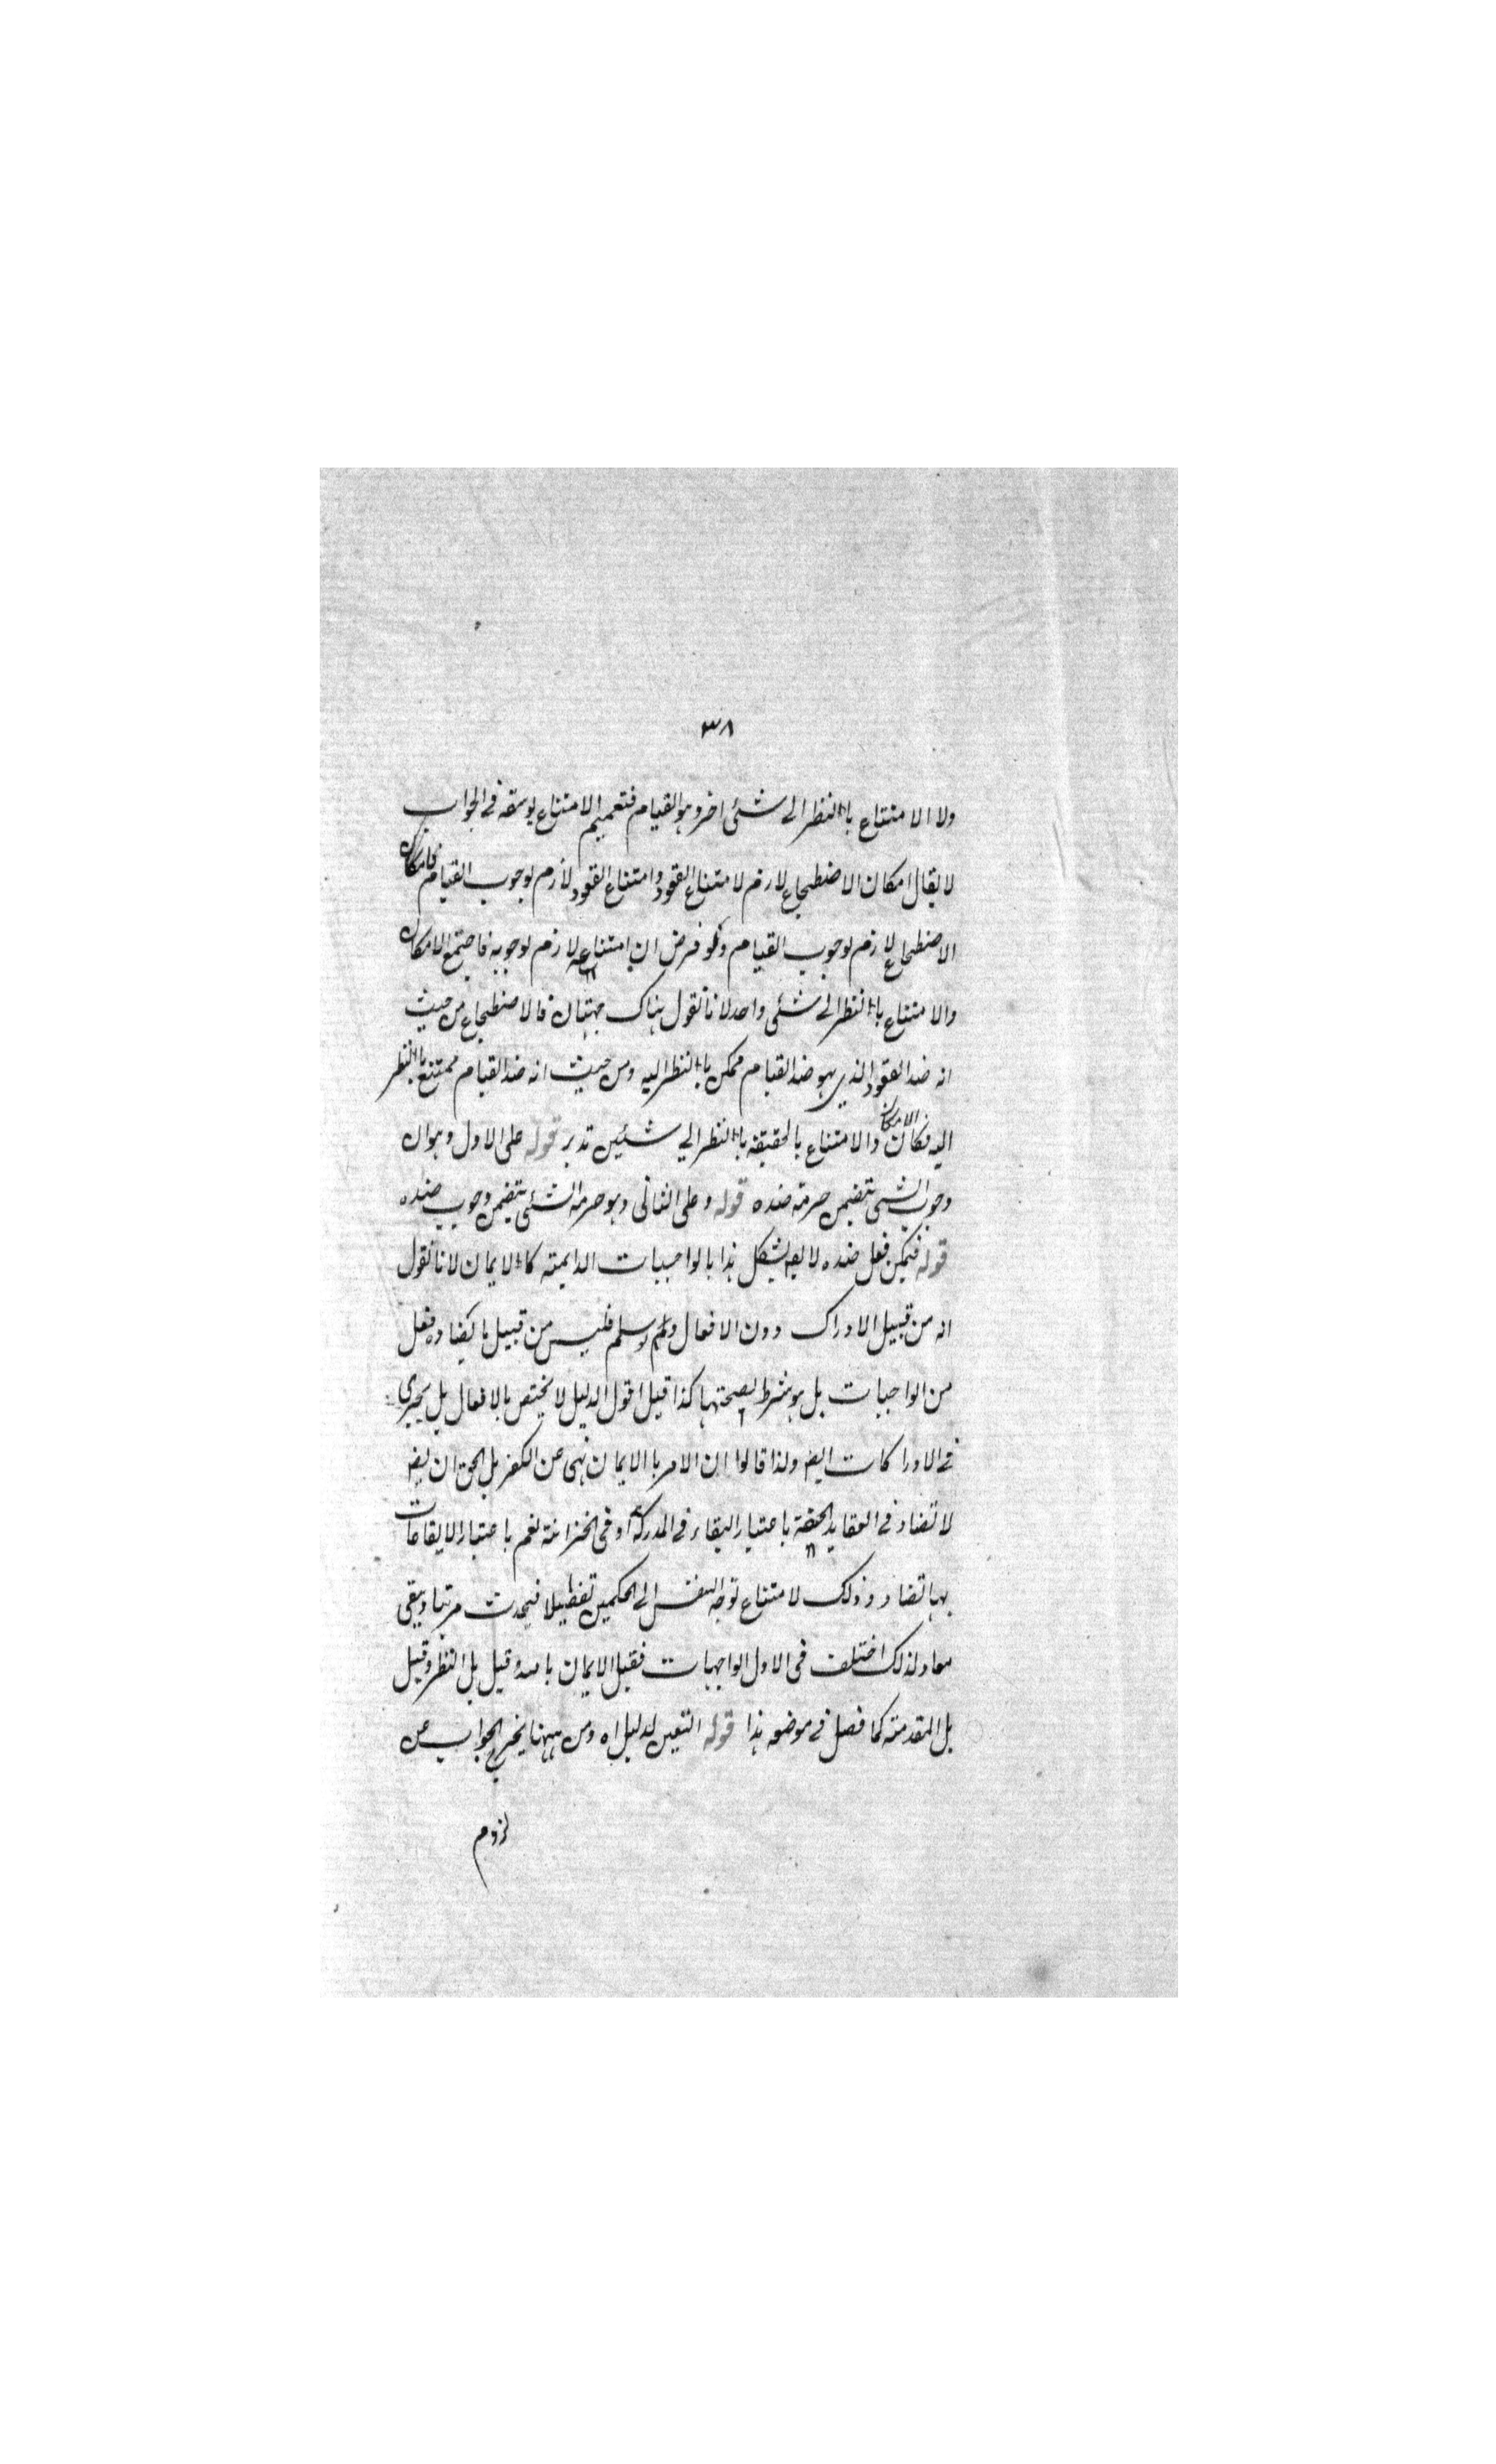 ٣٨
ولا الامتناع بالنظر الى شئ اخر وهو القيام فتعميم الامتناع يوسعه في الجواب
لا يقال امكان الاضطجاع لازم لامتناع القعود وامتناع القعود لازم لوجوب القيام فامكان
الاضطجاع لازم لوجوب القيام ولو فرض ان امتناعه لازم لوجوبه فاجتمع الامكان
والامتناع بالنظر الى شئ واحد لانا نقول هناك جهتان فالاضطجاع من حيث
انه ضد القعود الذي هو ضد القيام ممكن بالنظر اليه ومن حيث انه ضد القيام ممتنع بالنظر
اليه فكان الامكان والامتناع بالحقيقة بالنظر الى شيئين تدبر قوله على الاول وهو ان
وجوب الشئ يتضمن حرمة ضده قوله وعلى الثانى وهو حرمة الشئ يتضمن وجوب ضده
قوله فيمكن فعل ضده لا يقه يشكل هذا بالواجبات الدايمة كالايمان لانا نقول
انه من قبيل الادراك دون الافعال ولو سلم فليس من قبيل ما يضاده فعل
من الواجبات بل هو شرط لصحتها كذا قيل اقول الدليل لا يختص بالافعال بل يجرى
في الادراكات ايضا ولذا قالوا ان الامر بالايمان نهى عن الكفر بل الحق ان يقه
لا تضاد في العقايد الحقة باعتبار البقاء في المدركة او في الخزانة نعم باعتبار الايقاعات
بها تضاد وذلك لامتناع توجه النفس الى الحكمين تفصيلا فيحدث مرتبا ويبقى
معا ولذلك اختلف في الاول الواجبات فقيل الايمان بالله وقيل بل النظر وقيل
بل المقدمة كما فصل في موضعه هذا قوله التعين لدليل اه ومن ههنا يخرج الجواب عن
لزوم